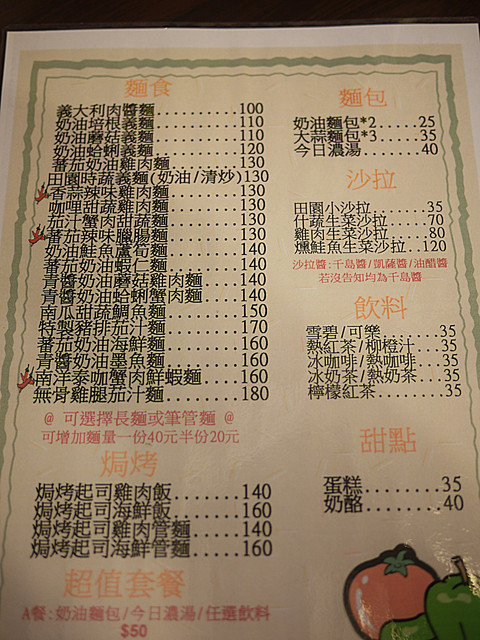 麵食
義大利肉醬麵 100
奶油培根義麵 110
奶油蘑菇義麵 110
奶油蛤蜊義麵 120
蕃茄奶油雞肉麵 130
田園時蔬義麵(奶油/清炒)130
香蒜辣味雞肉麵 130
咖哩甜蔬雞肉麵 130
茄汁蟹肉甜蔬麵 130
蕃茄辣味臘腸麵 130
奶油鮭魚蘆筍麵 140
蕃茄奶油蝦仁麵 140
青醬奶油蘑菇雞肉麵 140
青醬奶油蛤蜊蟹肉麵 140
南瓜甜蔬鯛魚麵 150
特製豬排茄汁麵 170
蕃茄奶油海鮮麵 160
青醬奶油墨魚麵 160
南洋泰咖蟹肉鮮蝦麵 160
無骨雞腿茄汁麵 180
@ 可選擇長麵或筆管麵 @
可增加麵量一份40元半份20元
焗烤
焗烤起司雞肉飯.......140
焗烤起司海鮮飯.......160
焗烤起司雞肉管麵.....140
焗烤起司海鮮管麵.....160
超值套餐
A餐:奶油麵包/今日濃湯/任選飲料
$50
麵包
奶油麵包*2.....25
大蒜麵包*3.....35
今日濃湯.......40
沙拉
田園小沙拉......35
什蔬生菜沙拉....70
雞肉生菜沙拉....80
燻鮭魚生菜沙拉..120
沙拉醬:千島醬/凱薩醬/油醋醬
若沒告知均為千島醬
飲料
雪碧/可樂 35
熱紅茶/柳橙汁...35
冰咖啡/熱咖啡...35
冰奶茶/熱奶茶...35
檸檬紅茶 35
甜點
蛋糕........35
奶酪........40